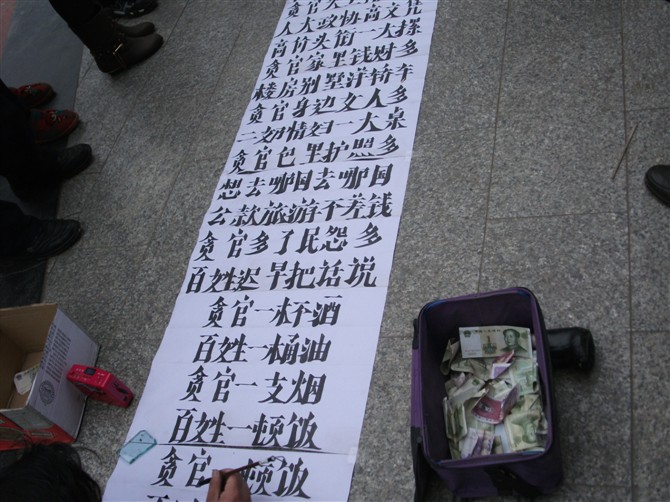 人大政协高文凭
高价头衔一大摞
贪官家里钱财多
楼房别墅洋轿车
贪官身边女人多
二奶情妇一大桌
贪官包里护照多
想去哪国去哪国
公款旅游不差钱
贪官多了民怨多
百姓迟早把话说
贪官一杯酒
百姓一桶油
贪官一支烟
百姓一顿饭
贪官一顿饭